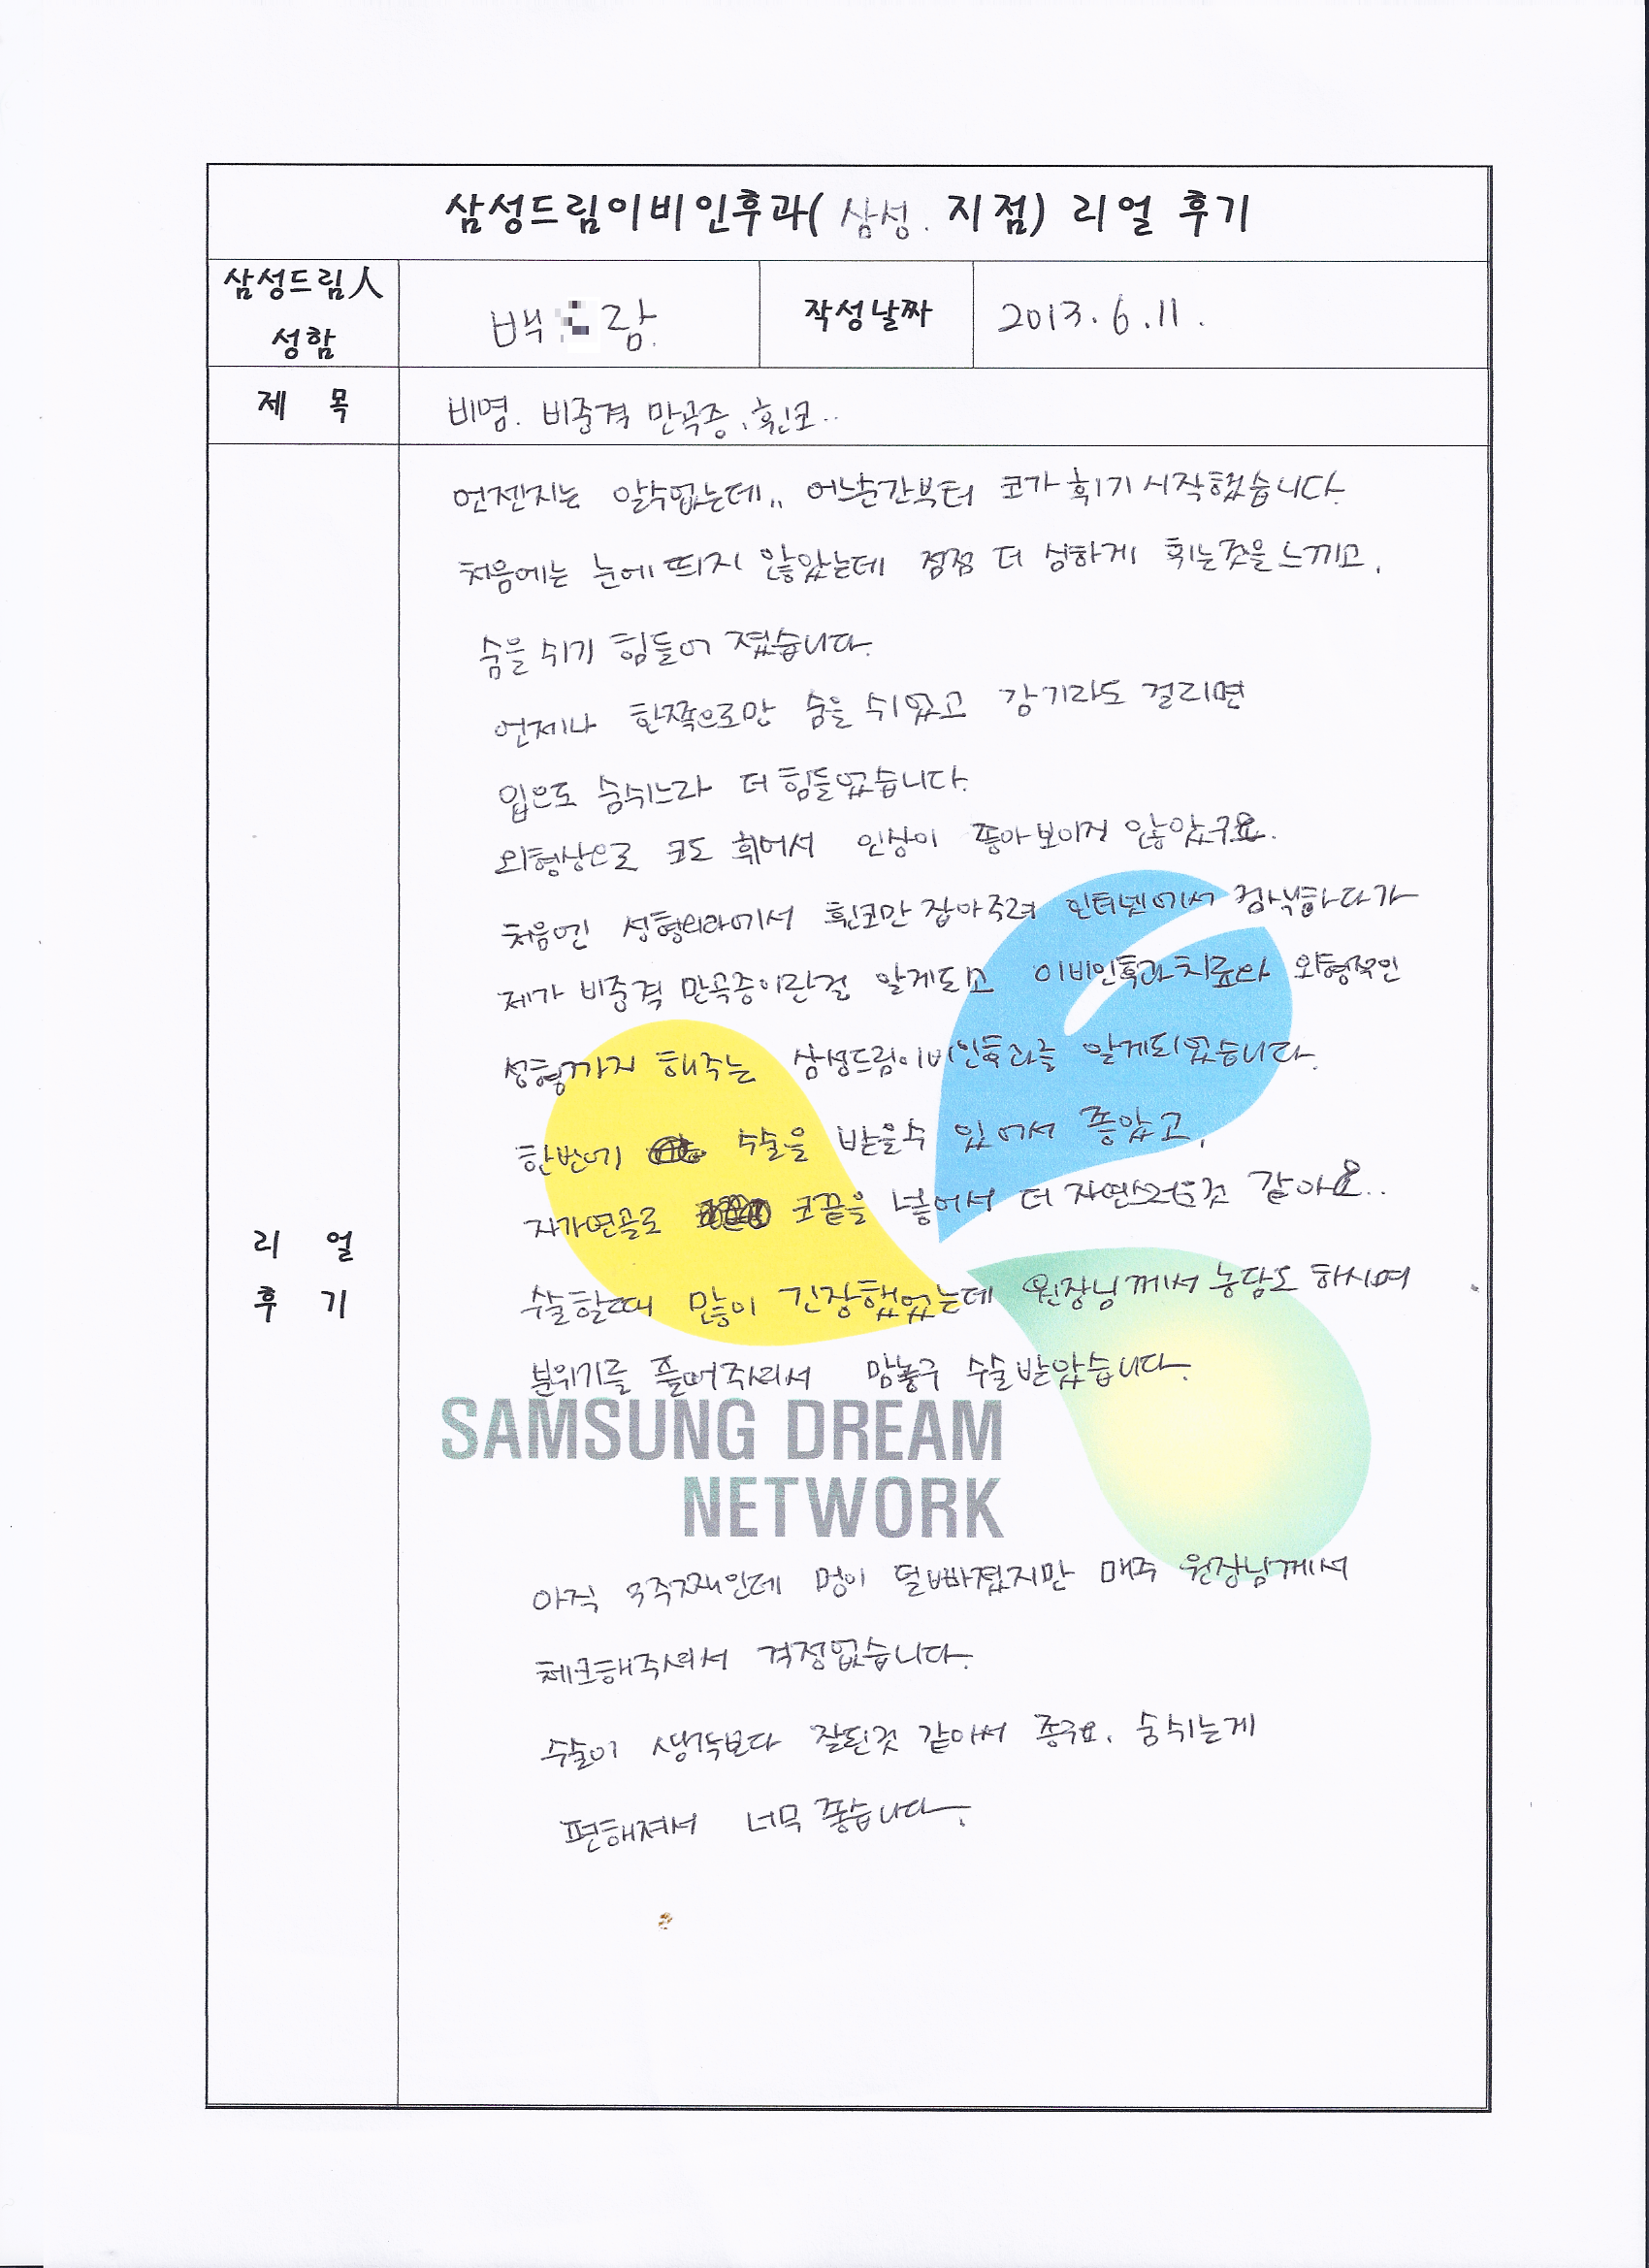 삼성드림이비인후과( 삼성. 지점) 리얼 후기
삼성드림人
성함
백 람.
작성날짜
2013. 6. 11.
제 목
비염. 비중격 만곡증, 휜코..
리 얼
후 기
언젠지는 알수없는데.. 어느순간부터 코가 휘기 시작했습니다.
처음에는 눈에 띄지 않았는데 점점 더 심하게 휘는것을 느끼고,
숨을 쉬기 힘들어 졌습니다.
언제나 한쪽으로만 숨을 쉬었고 감기라도 걸리면
입으로 숨쉬느라 더 힘들었습니다.
외형상으로 코도 휘어서 인상이 좋아보이지 않았구요.
처음엔 성형외과에서 휜코만 잡아주려 인터넷에서 검색하다가
제가 비중격 만곡증이란걸 알게되고 이비인후과치료와 외형적인
성형까지 해주는 삼성드림이비인후과를 알게되었습니다.
한번에 수술을 받을수 있어서 좋았고,
자가연골로 코끝을 넣어서 더 자연스러운것 같아요..
수술할때 많이 긴장했었는데 원장님께서 농담도 하시며
분위기를 풀어주셔서 맘놓구 수술받았습니다.
SAMSUNG DREAM
NETWORK
아직 3주째인데 멍이 덜빠졌지만 매주 원장님께서
체크해주셔서 걱정없습니다.
수술이 생각보다 잘된것 같아서 좋구요. 숨쉬는게
편해져서 너무 좋습니다.